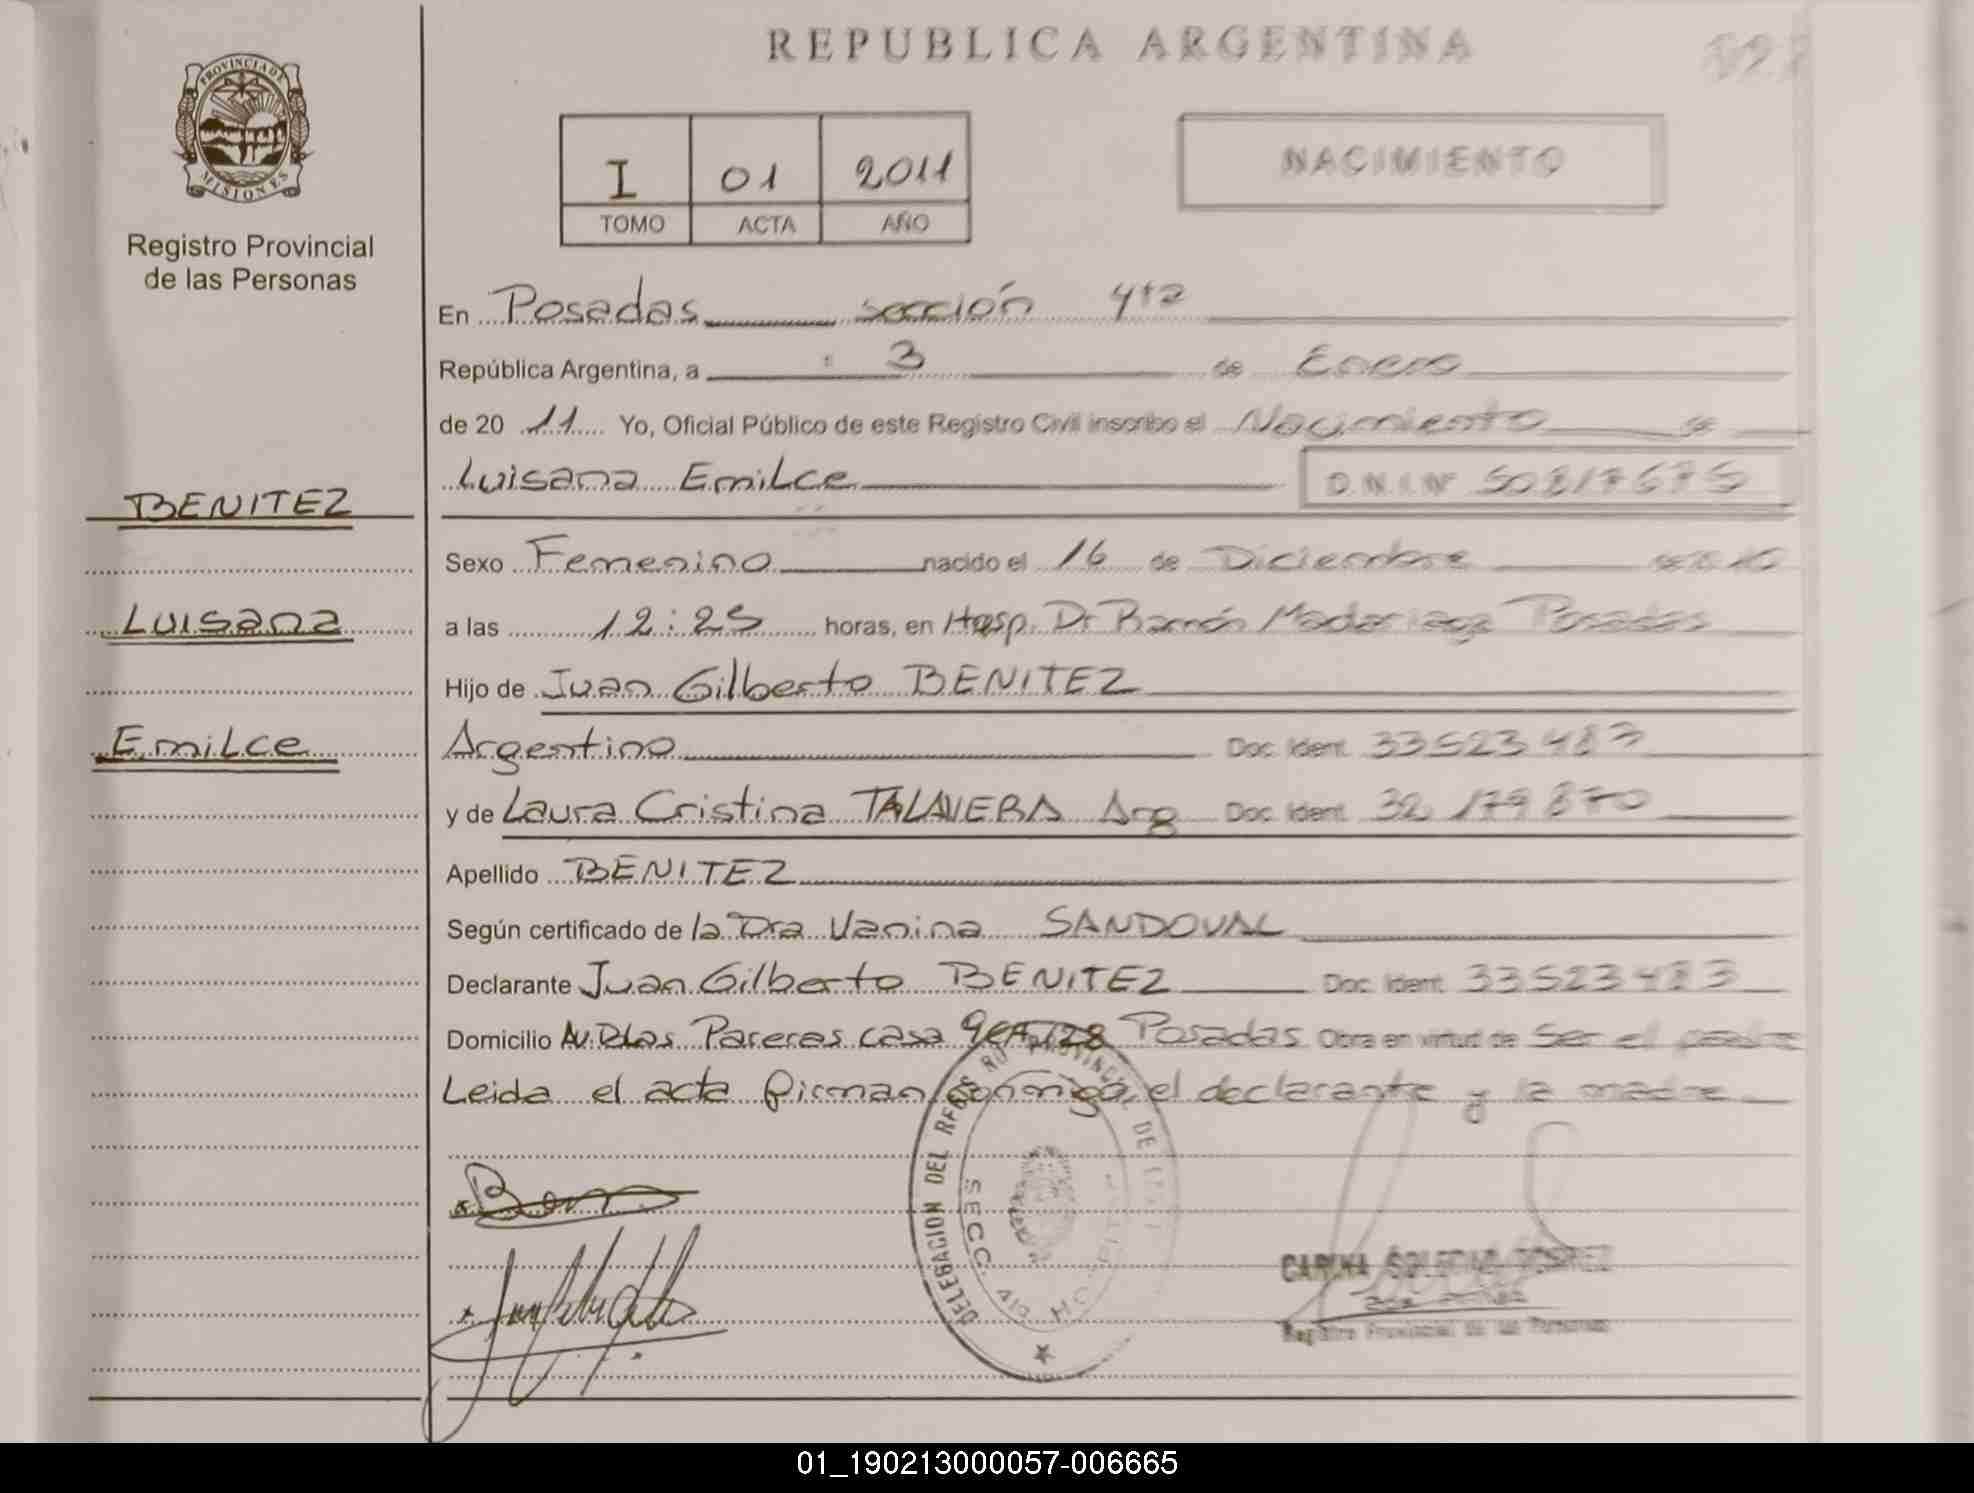 REPUBLICA ARGENTINA
PROVINCIA DE
MISIONES
Registro Provincial
de las Personas
I 01 2011
TOMO ACTA AÑO
NACIMIENTO
En Posadas sección 4ta
República Argentina, a 3 de Enero
de 20 11 Yo, Oficial Público de este Registro Civil inscribo el Nacimiento de
Luisana Emilce D.N.I.Nº
BENITEZ
Sexo Femenino nacido el 16 de Diciembre
Luisana
a las 12:25 horas, en Hosp. Dr Ramón Madariaga Posadas
Hijo de Juan Gilberto BENITEZ
Emilce
Argentino Doc. Ident. 33523483
y de Laura Cristina TALAVERA Arg Doc. Ident. 32 179 870
Apellido BENITEZ
Según certificado de la Dra Vanina SANDOVAL
Declarante Juan Gilberto BENITEZ Doc. Ident. 33523483
Domicilio Pareras casa Posadas Obra en virtud de Ser el padre
Leida el acta firman conmigo, el declarante y la madre
DELEGACION DEL REGISTRO PROVINCIAL DE
SECC. 4ta
Registro Provincial de las Personas
01_190213000057-006665